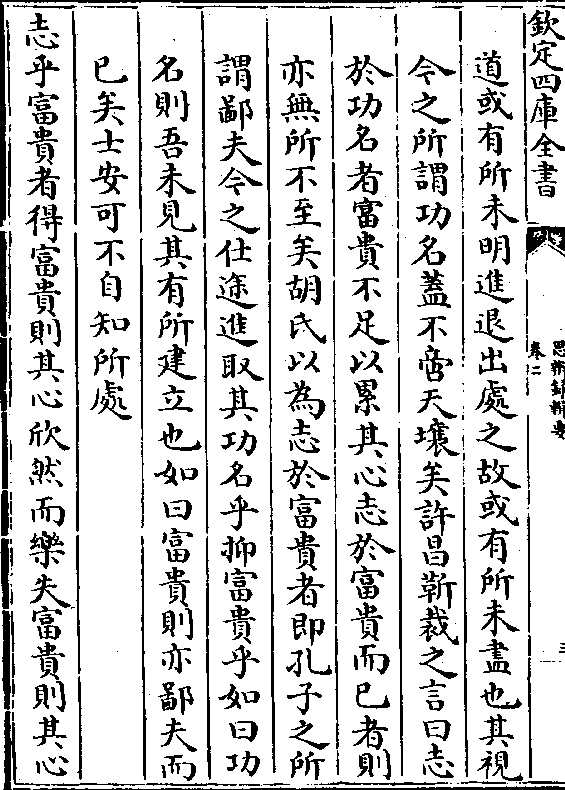 欽定四庫全書
思辨錄輯要
卷二
三
道或有所未明進退出處之故或有所未盡也其視
今之所謂功名蓋不啻天壤矣許昌靳裁之言曰志
於功名者富貴不足以累其心志於富貴而已者則
亦無所不至矣胡氏以為志於富貴者即孔子之所
謂鄙夫今之仕途進取其功名乎抑富貴乎如曰功
名則吾未見其有所建立也如曰富貴則亦鄙夫而
已矣士安可不自知所處
志乎富貴者得富貴則其心欣然而樂失富貴則其心